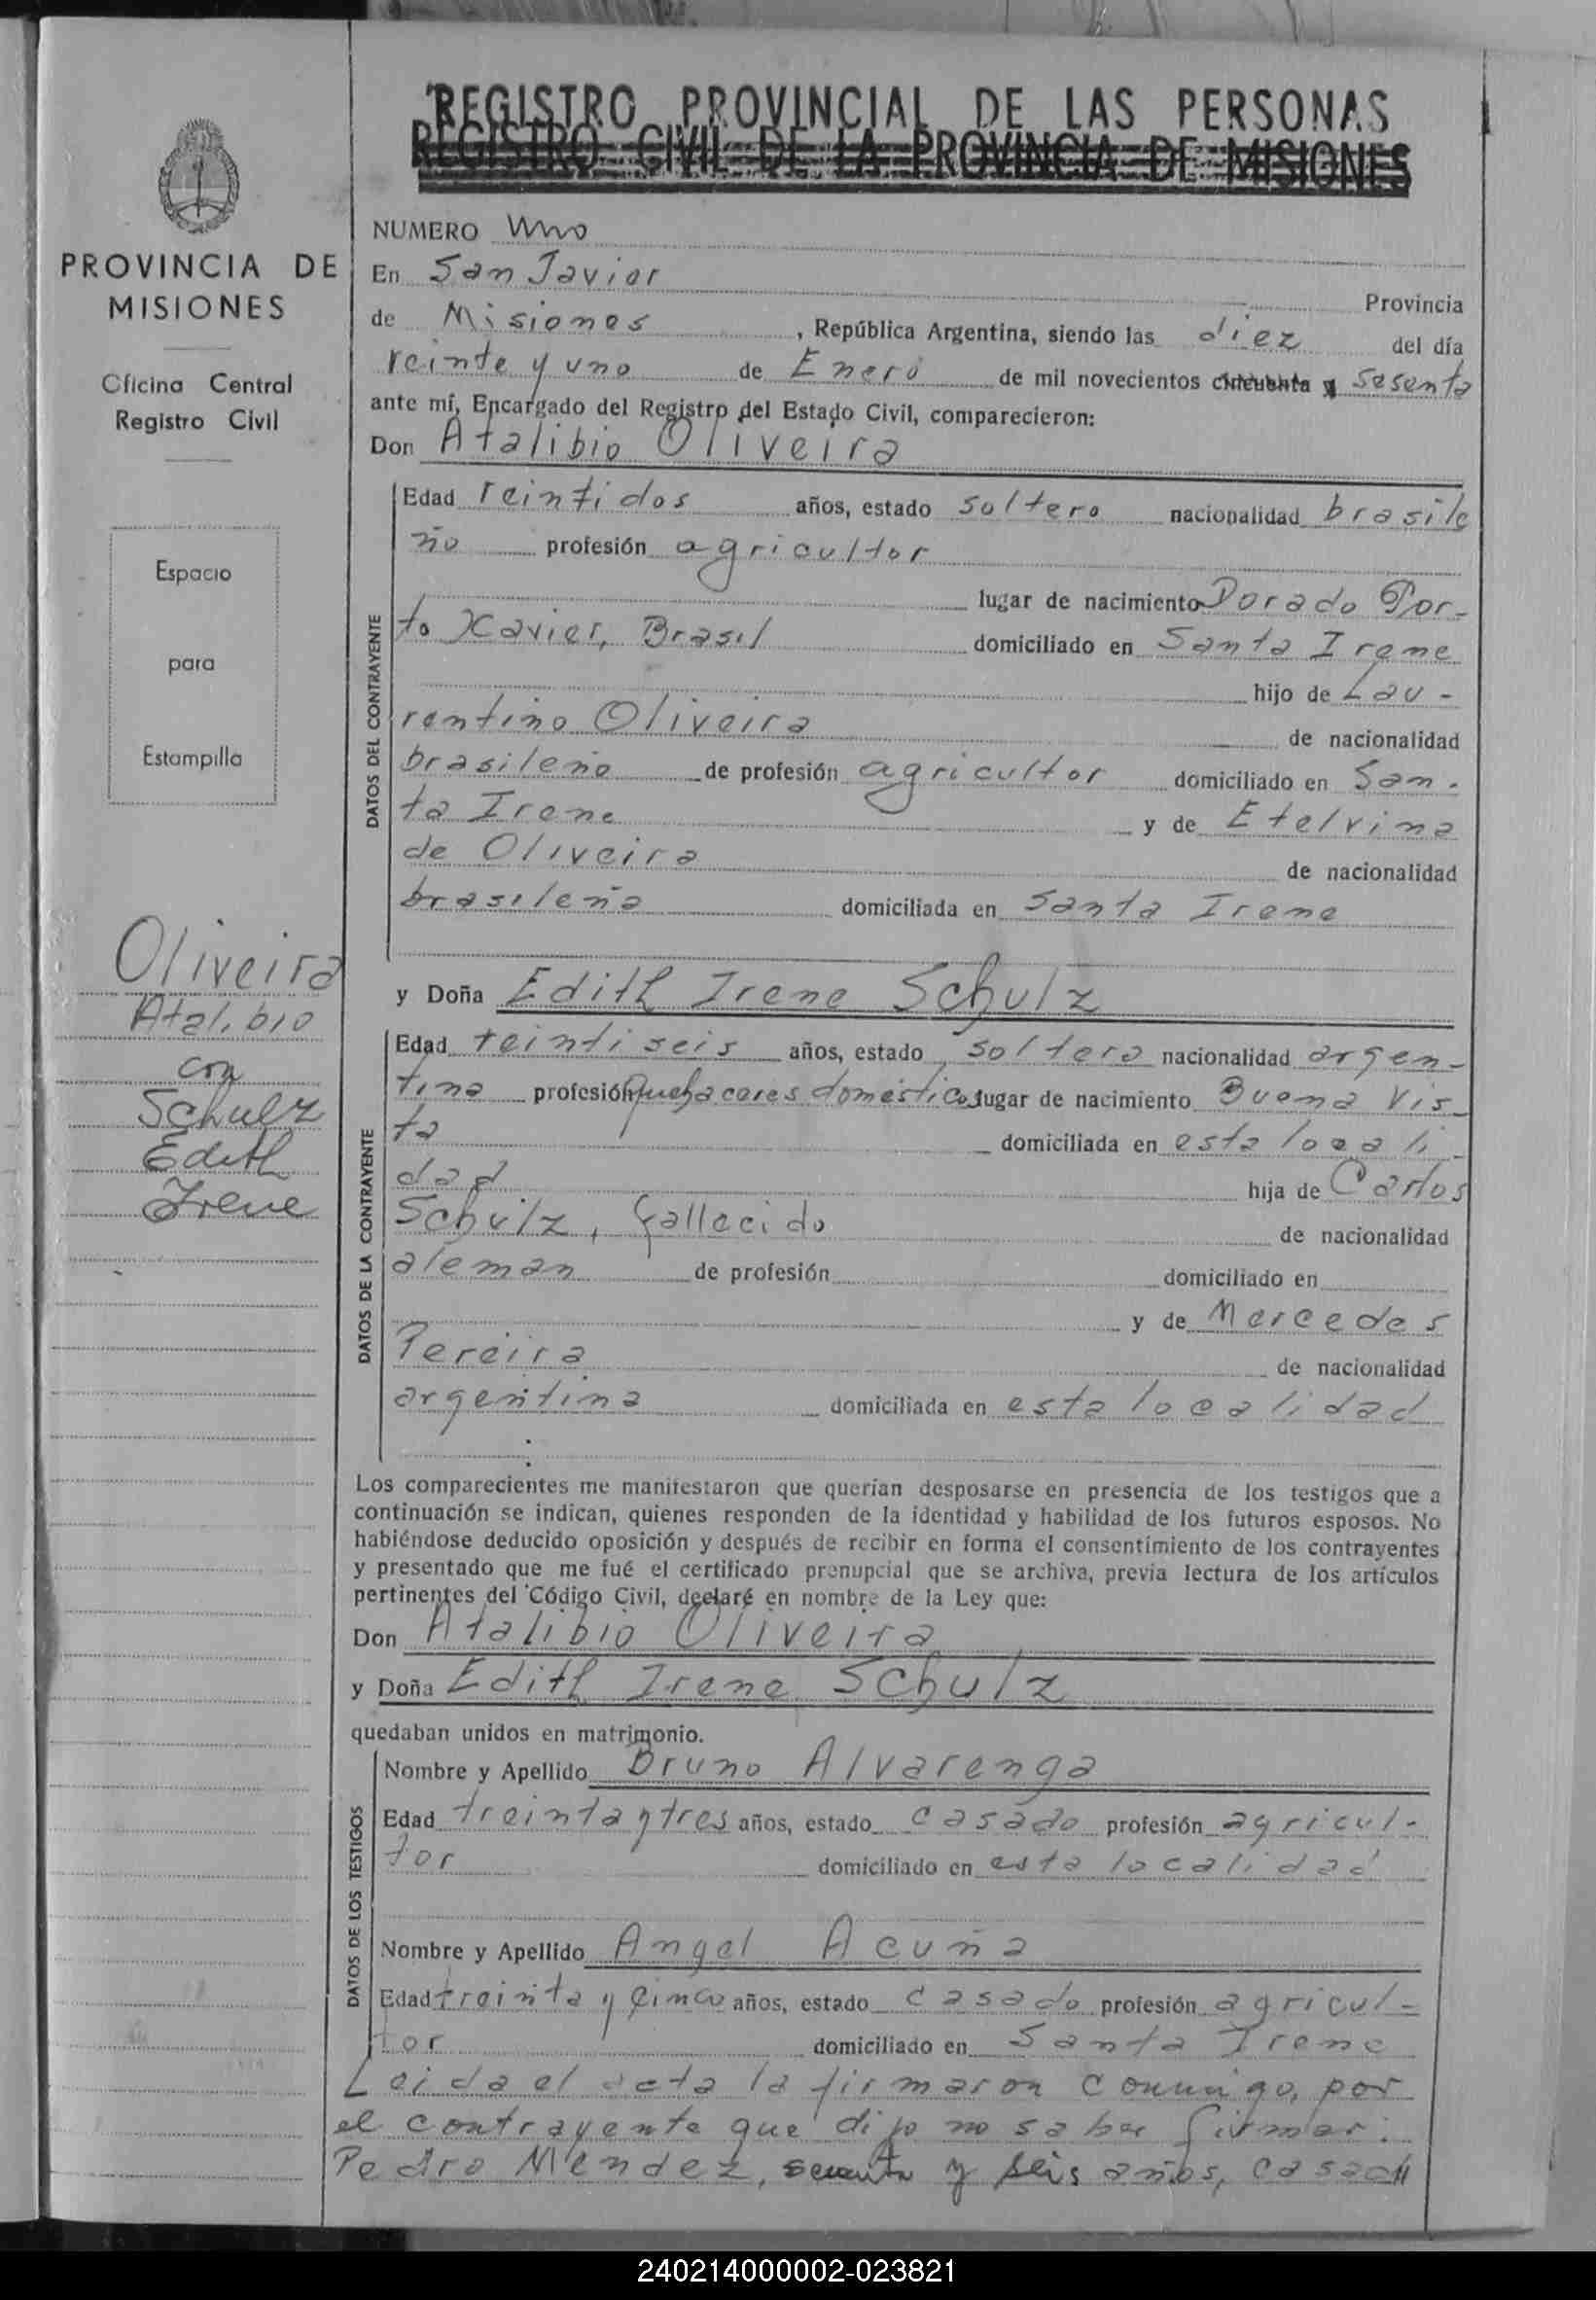 REGISTRO PROVINCIAL DE LAS PERSONAS
REGISTRO CIVIL DE LA PROVINCIA DE MISIONES
PROVINCIA DE
MISIONES
Oficina Central
Registro Civil
Espacio
para
Estampilla
Oliveira
Atalibio
con
Schulz
Edith
Irene
NUMERO Uno
En San Javier
Provincia
de Misiones, República Argentina, siendo las diez del día
veinte y uno de Enero de mil novecientos cincuenta y sesenta
ante mí, Encargado del Registro del Estado Civil, comparecieron:
Don Atalibio Oliveira
DATOS DEL CONTRAYENTE
Edad veintidos años, estado soltero nacionalidad brasile
ño profesión agricultor
lugar de nacimiento Dorado Por-
to Xavier, Brasil domiciliado en Santa Irene
hijo de Lau-
rentino Oliveira de nacionalidad
brasileño de profesión agricultor domiciliado en San-
ta Irene y de Etelvina
de Oliveira de nacionalidad
brasileña domiciliada en Santa Irene
y Doña Edith Irene Schulz
DATOS DE LA CONTRAYENTE
Edad veinti seis años, estado soltera nacionalidad argen-
tina profesión quehaceres domésticos lugar de nacimiento Buena Vis-
ta domiciliada en esta locali
dad hija de Carlos
Schulz, fallecido de nacionalidad
aleman de profesión domiciliado en
y de Mercedes
Pereira de nacionalidad
argentina domiciliada en esta localidad
Los comparecientes me manifestaron que querían desposarse en presencia de los testigos que a
continuación se indican, quienes responden de la identidad y habilidad de los futuros esposos. No
habiéndose deducido oposición y después de recibir en forma el consentimiento de los contrayentes
y presentado que me fué el certificado prenupcial que se archiva, previa lectura de los artículos
pertinentes del Código Civil, declaré en nombre de la Ley que:
Don Atalibio Oliveira
y Doña Edith Irene Schulz
quedaban unidos en matrimonio.
DATOS DE LOS TESTIGOS
Nombre y Apellido Bruno Alvarenga
Edad treinta y tres años, estado casado profesión agricul-
tor domiciliado en esta localidad
Nombre y Apellido Angel Acuña
Edad treinta y cinco años, estado casado profesión agricul-
tor domiciliado en Santa Irene
Leida el acta la firmaron conmigo, por
el contrayente que dijo no saber firmar:
Pedro Mendez, y seis años, casad
240214000002-023821